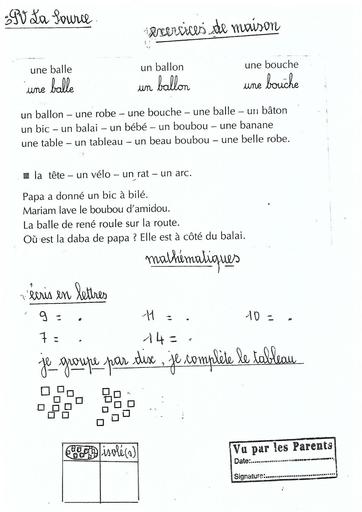 EPV La Source
exercices de maison
une balle un ballon une bouche
une balle un ballon une bouche
un ballon – une robe – une bouche – une balle – un bâton
un bic – un balai – un bébé – un boubou – une banane
une table – un tableau – un beau boubou – une belle robe.
■ la tête – un vélo – un rat – un arc.
Papa a donné un bic à bilé.
Mariam lave le boubou d'amidou.
La balle de rené roule sur la route.
Où est la daba de papa ? Elle est à côté du balai.
mathématiques
écris en lettres
9 = . 11 = . 10 = .
7 = . 14 = .
je groupe par dix, je complète le tableau
isolé(s)
Vu par les Parents
Date:
Signature: